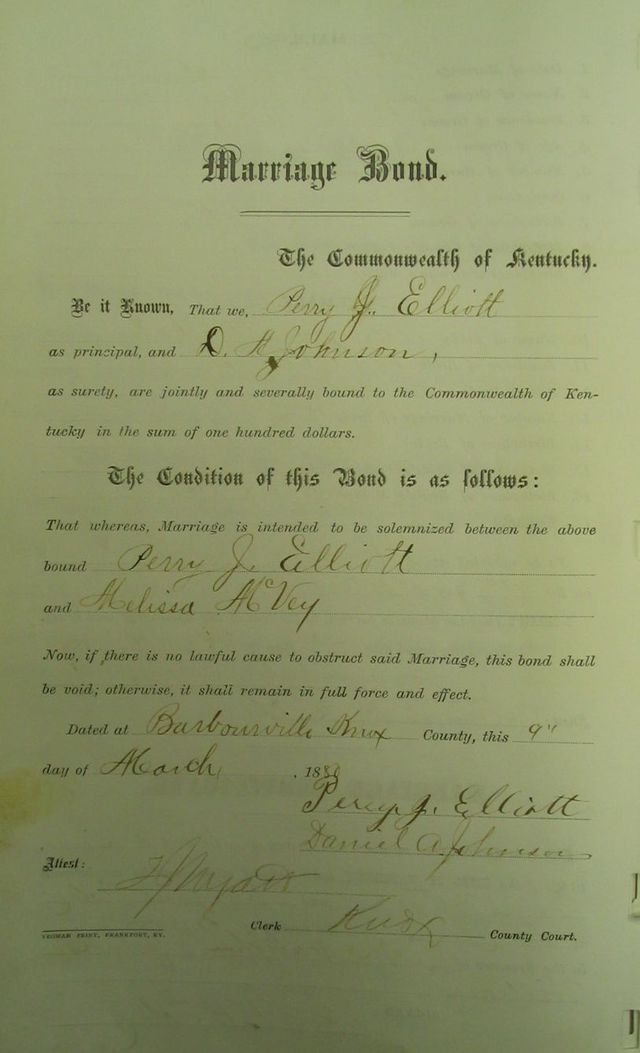 Marriage Bond.
The Commonwealth of Kentucky.
Be it Known, That we, Perry J. Elliott
as principal, and D. A Johnson,
as surety, are jointly and severally bound to the Commonwealth of Ken-
tucky in the sum of one hundred dollars.
The Condition of this Bond is as follows:
That whereas, Marriage is intended to be solemnized between the above
bound Perry J. Elliott
and Melissa McVey
Now, if there is no lawful cause to obstruct said Marriage, this bond shall
be void; otherwise, it shall remain in full force and effect.
Dated at Barbourville Knox County, this 9"
day of March, 188
Perry J. Elliott
Daniel A Johnson
Attest:
Clerk Knox County Court.
YEOMAN PRINT, FRANKFORT, KY.